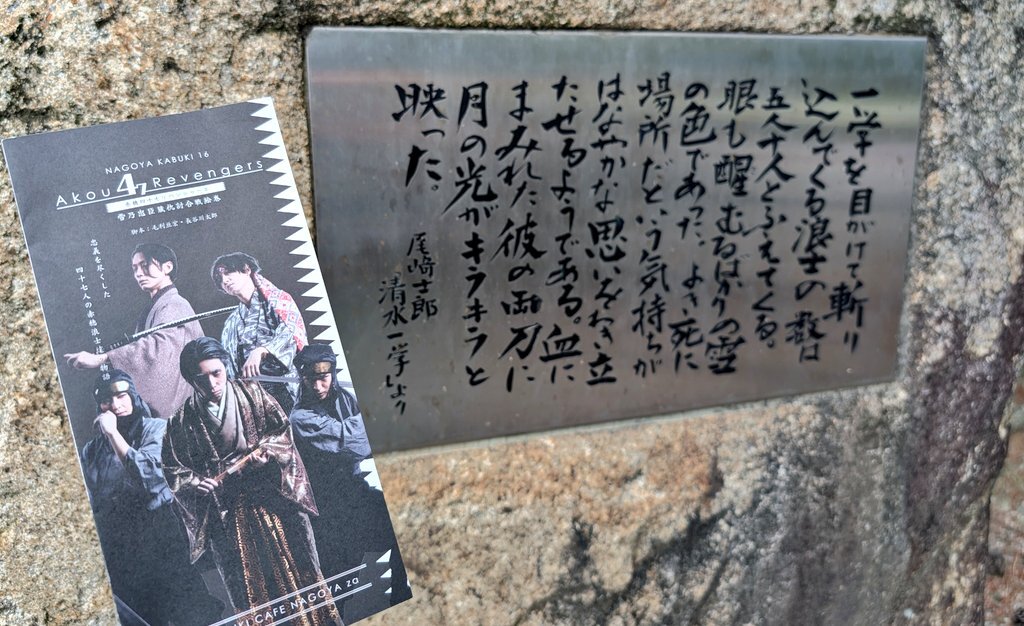 NAGOYA KABUKI 16
Akou 47 Revengers
雪乃忠臣蔵仇討合戦絵巻
脚本：毛利亘宏・長谷川太郎
忠義を尽くした
四十七人の赤穂浪士
物語
KI CAFE NAGOYA za
一学を目がけて斬り
込んでくる浪士の数は
五人十人とふえてくる。
眼も醒むるばかりの雪
の色であった。よき死に
場所だという気持ちが
はなやかな思いをわき立
たせるようである。血に
まみれた彼の両刀に
月の光がキラキラと
映った。
尾﨑士郎
清水一学より